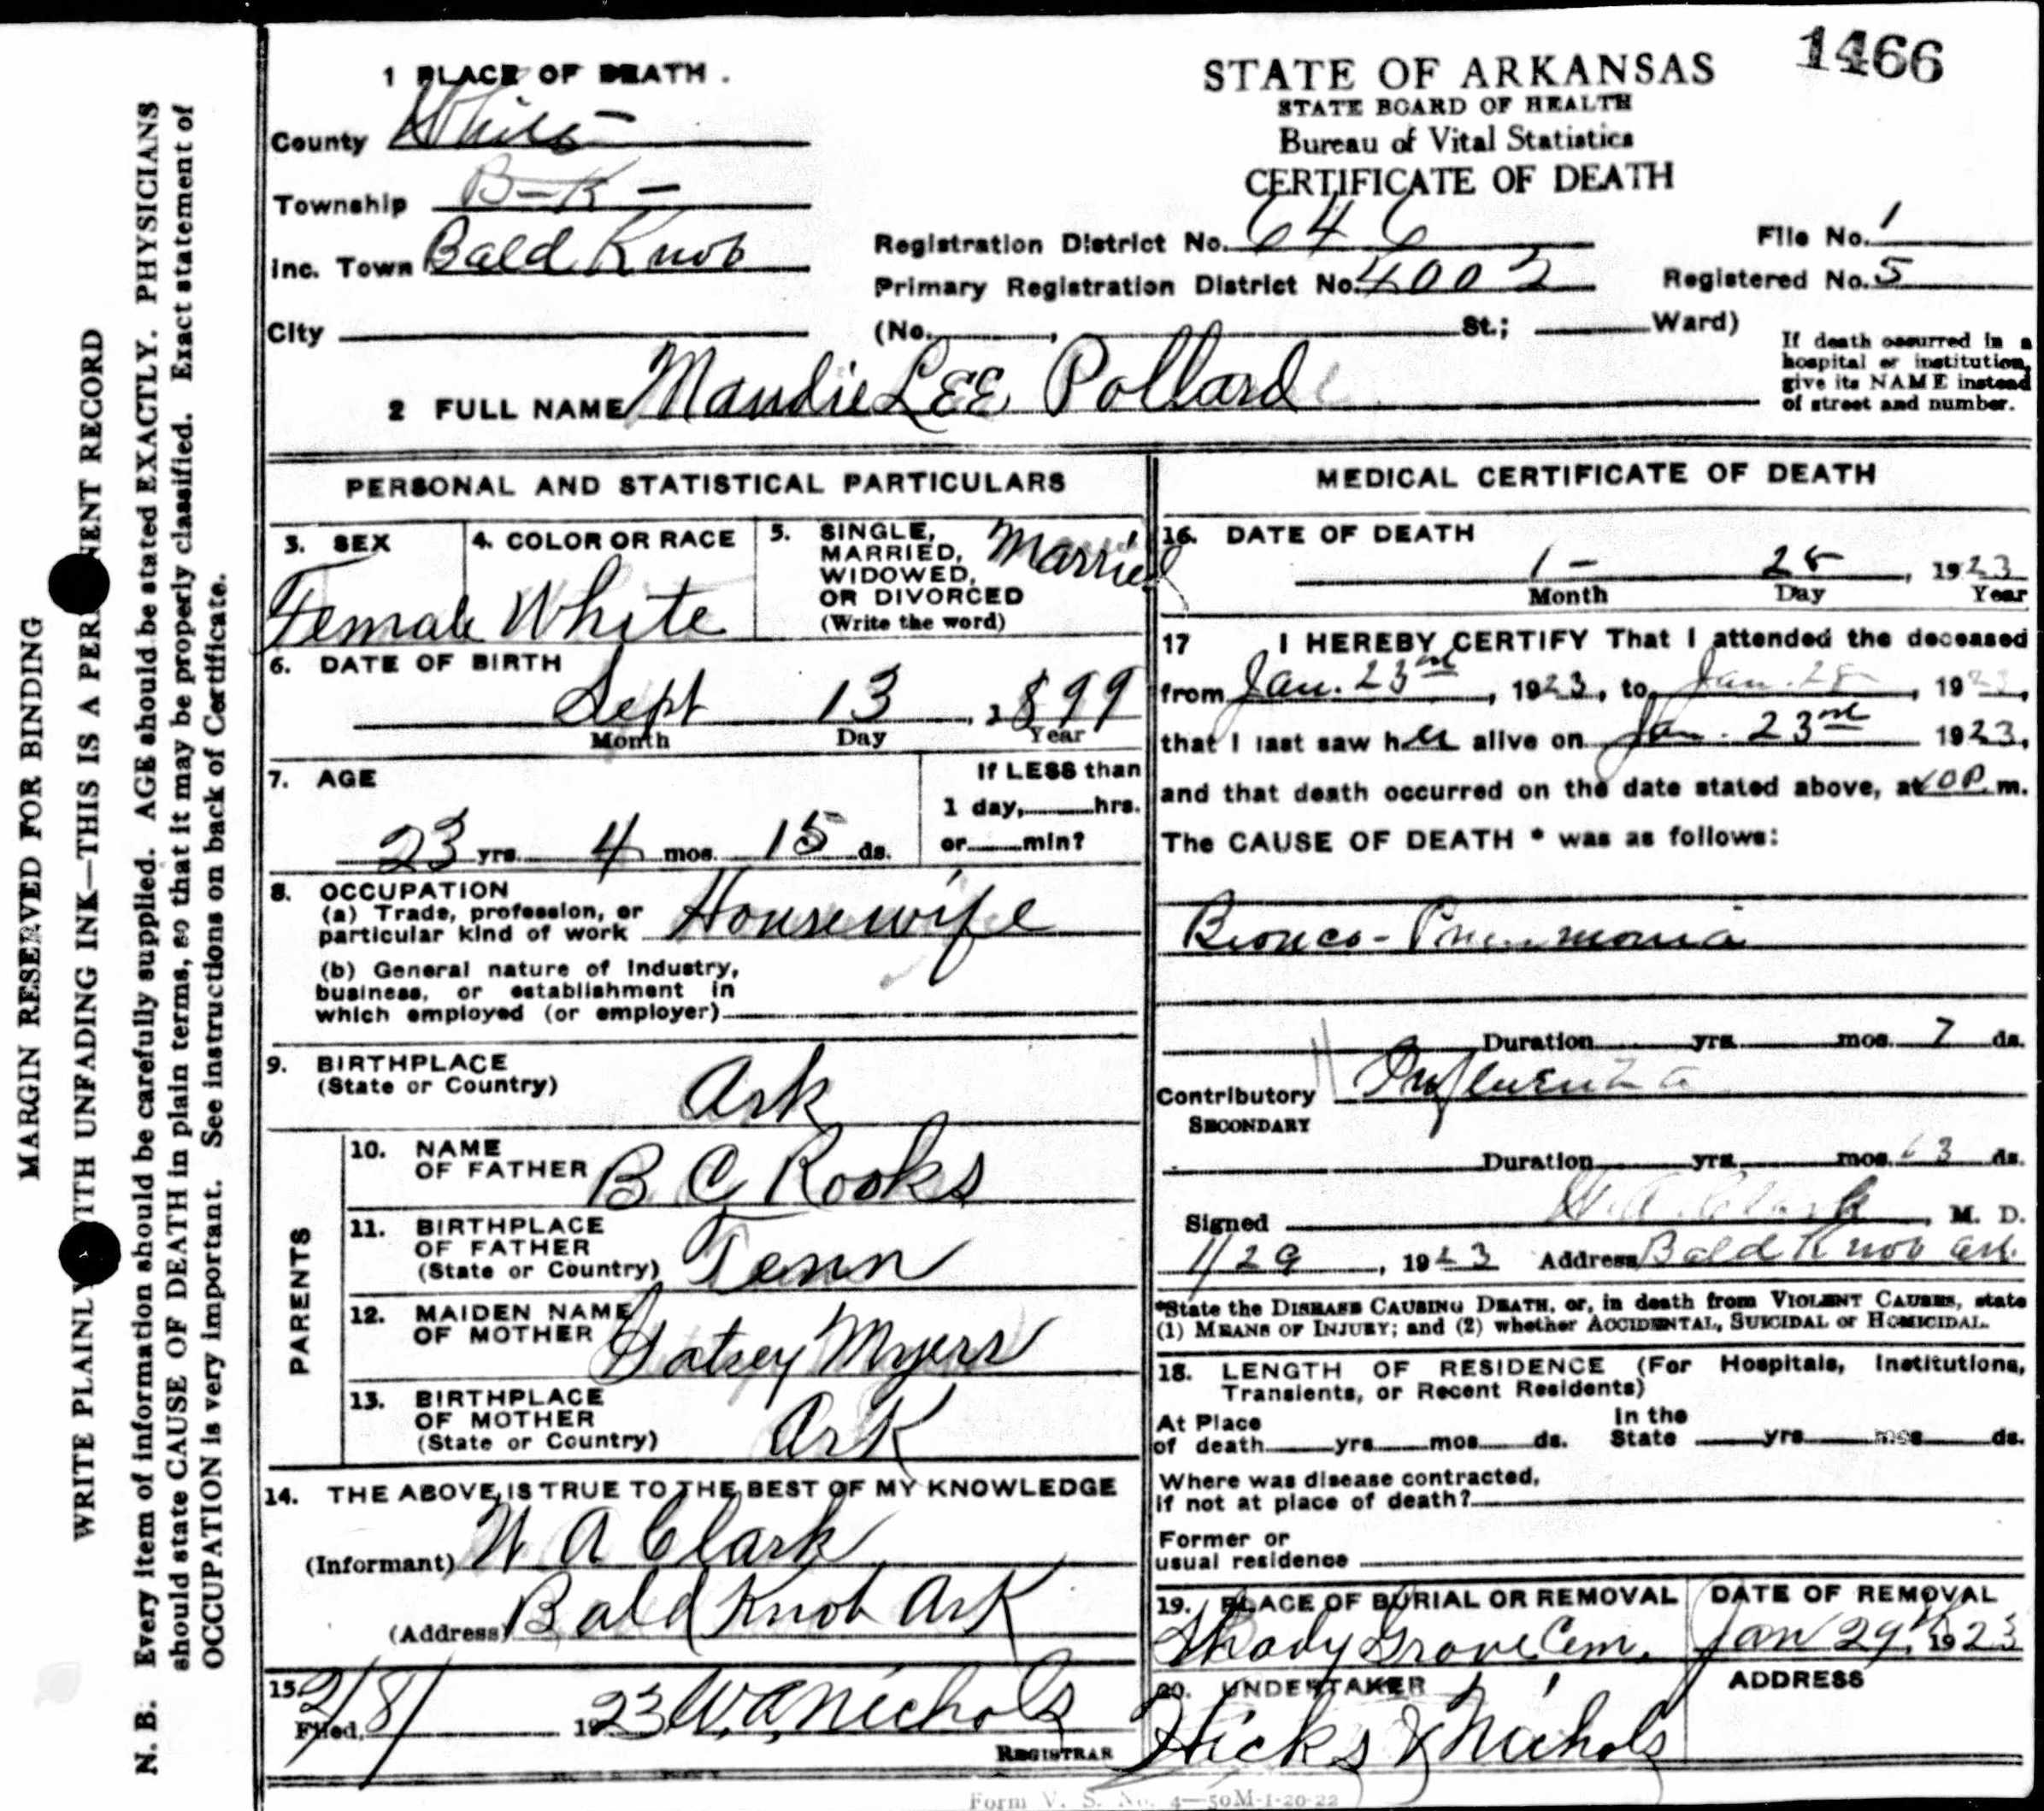 1466
1 PLACE OF DEATH.
County White
Township B-K-
Inc. Town Bald Knob
City
STATE OF ARKANSAS
STATE BOARD OF HEALTH
Bureau of Vital Statistics
CERTIFICATE OF DEATH
Registration District No. 646 File No. 1
Primary Registration District No. 4002 Registered No. 5
(No. , St.; Ward)
If death occurred in a
hospital or institution,
give its NAME instead
of street and number.
2 FULL NAME Maudie LEE Pollard
PERSONAL AND STATISTICAL PARTICULARS
3. SEX
Female
4. COLOR OR RACE
White
5. SINGLE,
MARRIED,
WIDOWED,
OR DIVORCED
(Write the word)
Married
6. DATE OF BIRTH
Sept 13, 1899
Month Day Year
7. AGE
23 yrs. 4 mos. 15 ds.
If LESS than
1 day, hrs.
or min?
8. OCCUPATION
(a) Trade, profession, or
particular kind of work Housewife
(b) General nature of Industry,
business, or establishment in
which employed (or employer)
9. BIRTHPLACE
(State or Country) Ark
PARENTS
10. NAME
OF FATHER B C Rooks
11. BIRTHPLACE
OF FATHER
(State or Country) Tenn
12. MAIDEN NAME
OF MOTHER Myers
13. BIRTHPLACE
OF MOTHER
(State or Country) Ark
14. THE ABOVE IS TRUE TO THE BEST OF MY KNOWLEDGE
(Informant) W A Clark
(Address) Bald Knob Ark
15.
Filed, 2/8/ 1923 W.A. Nichols
REGISTRAR
MEDICAL CERTIFICATE OF DEATH
16. DATE OF DEATH
1- 28, 1923
Month Day Year
17 I HEREBY CERTIFY That I attended the deceased
from Jan. 23rd, 1923, to Jan. 28, 1923,
that I last saw her alive on Jan. 23rd 1923,
and that death occurred on the date stated above, at 10 P. m.
The CAUSE OF DEATH * was as follows:
Bronco-Pneumonia
Duration yrs. mos. 7 ds.
Contributory Influenza
SECONDARY
Duration yrs. mos. 3 ds.
Signed W. A. Clark, M. D.
1/29, 1923 Address Bald Knob Ark.
*State the DISEASE CAUSING DEATH, or, in death from VIOLENT CAUSES, state
(1) MEANS OF INJURY; and (2) whether ACCIDENTAL, SUICIDAL or HOMICIDAL.
18. LENGTH OF RESIDENCE (For Hospitals, Institutions,
Transients, or Recent Residents)
At Place
of death yrs. mos. ds.
In the
State yrs. mos. ds.
Where was disease contracted,
if not at place of death?
Former or
usual residence
19. PLACE OF BURIAL OR REMOVAL
Shady Grove Cem.
DATE OF REMOVAL
Jan 29th 1923
20. UNDERTAKER
Hicks & Nichols
ADDRESS
Form V. S. No. 4—50M-1-20-22
MARGIN RESERVED FOR BINDING
WRITE PLAINLY WITH UNFADING INK—THIS IS A PERMANENT RECORD
N. B. Every item of information should be carefully supplied. AGE should be stated EXACTLY. PHYSICIANS
should state CAUSE OF DEATH in plain terms, so that it may be properly classified. Exact statement of
OCCUPATION is very important. See instructions on back of Certificate.